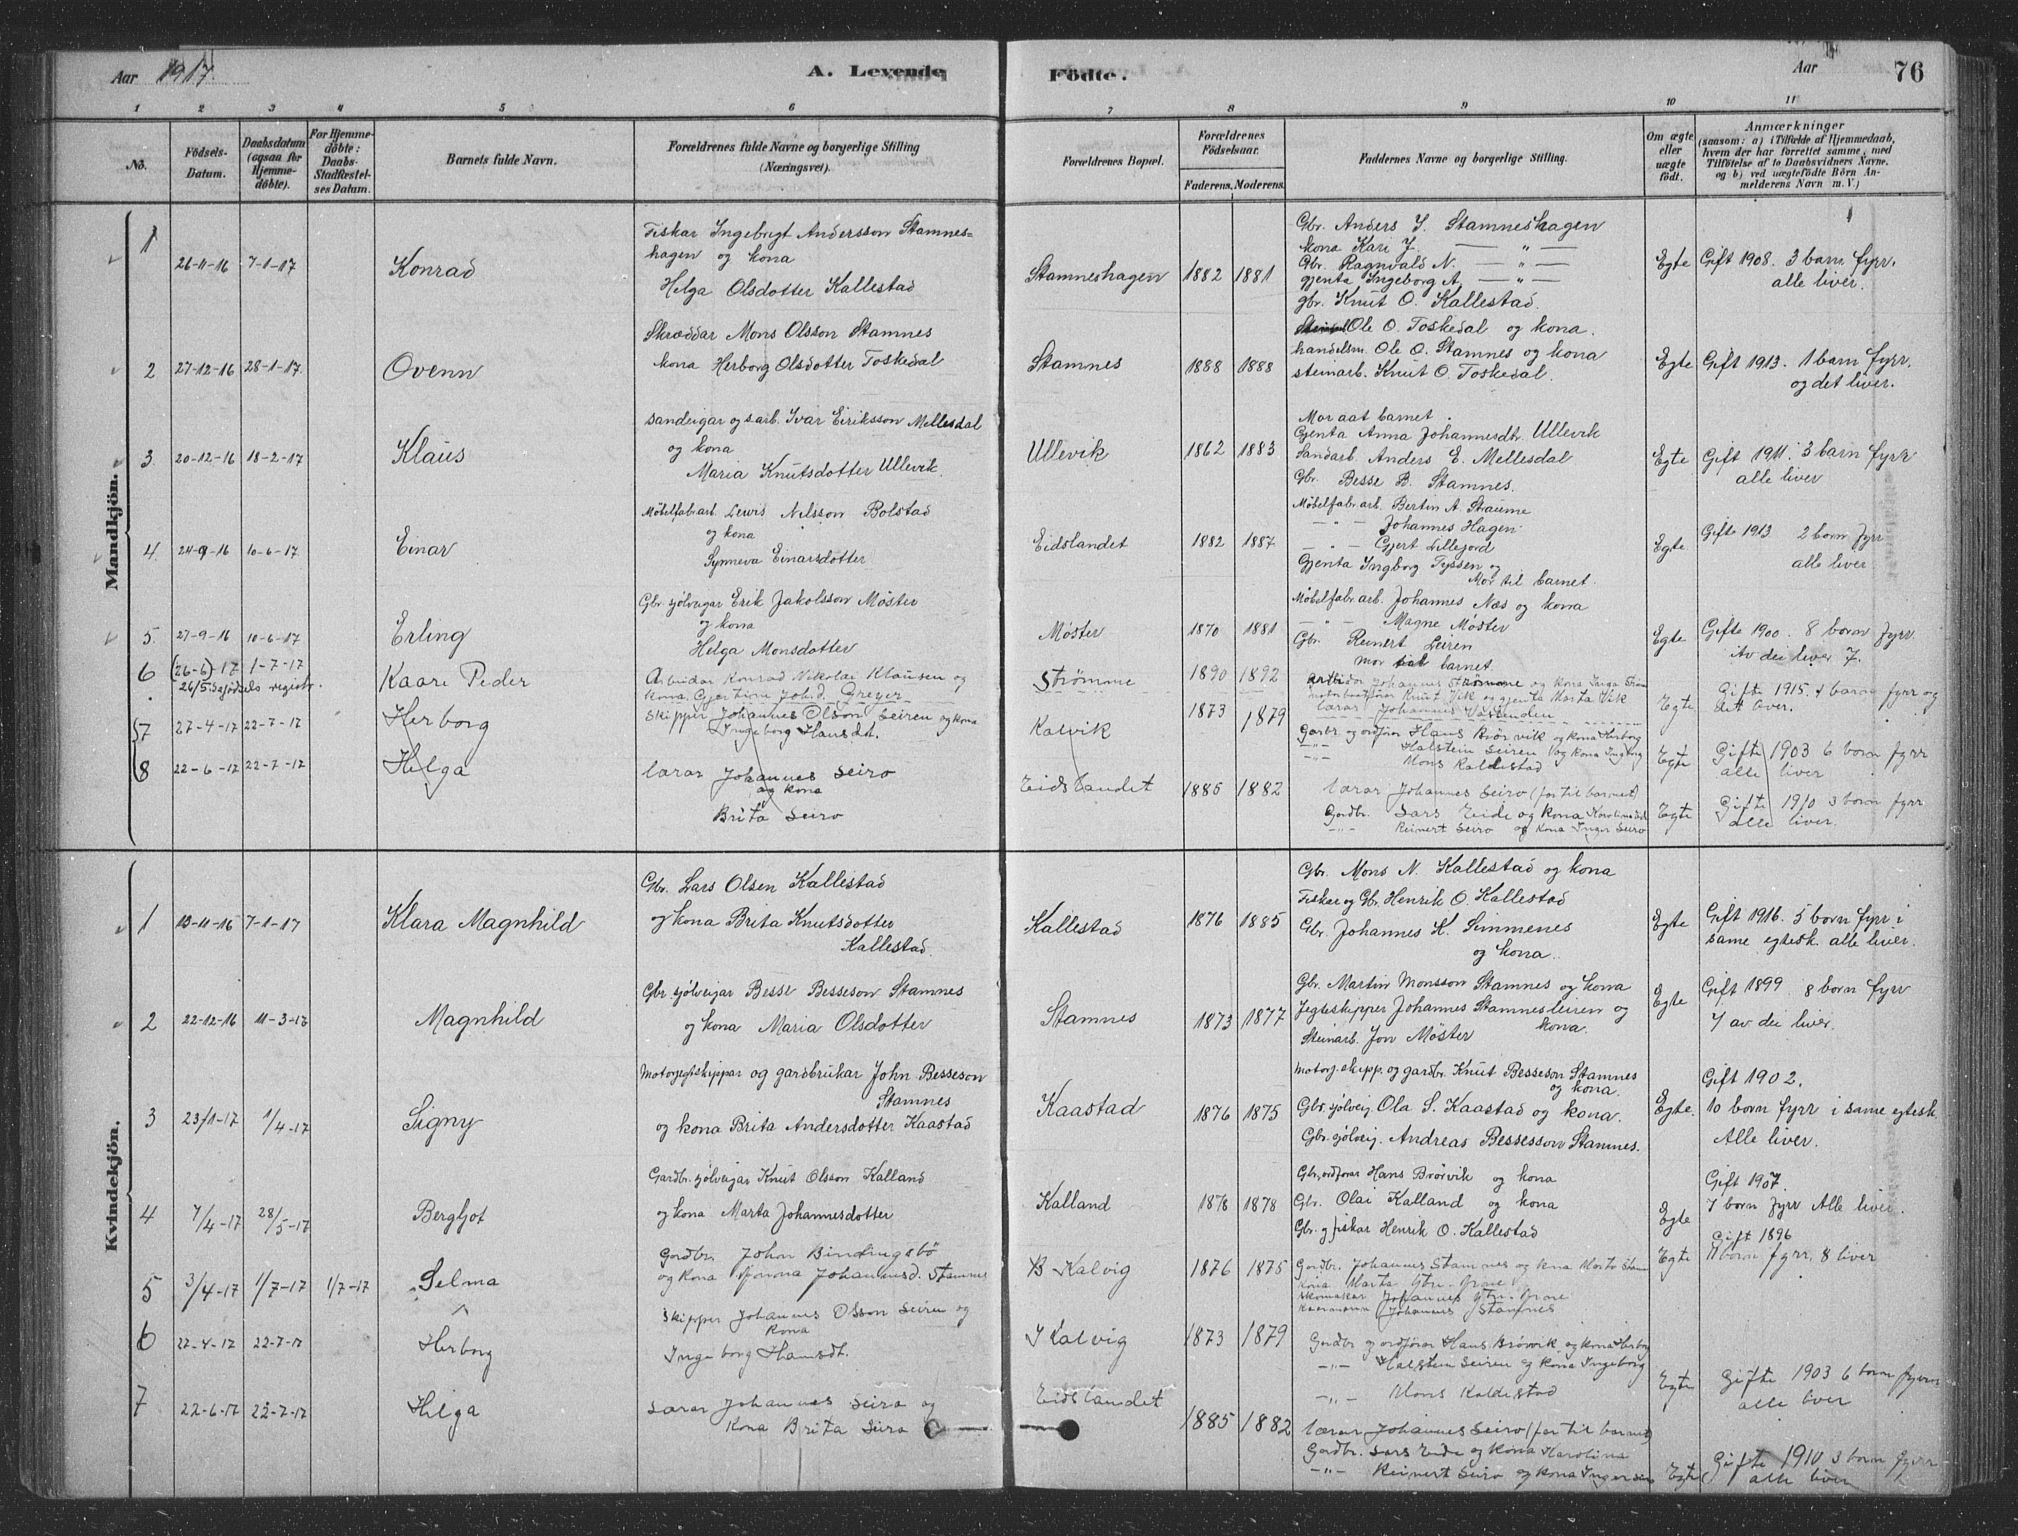 Aar 1917. A. Levende Födte. Aar 76
1 2 3 4 5 6 7 8 9 10 11
No. Födsels-Datum. Daabsdatum (ogsaa for Hjemmedöbte). For Hjemmedöbte: Daabs-Stadfæstelses Datum. Barnets fulde Navn. Forældrenes fulde Navne og borgerlige Stilling (Næringsvei). Forældrenes Bopæl. Forældrenes Födselsaar. Faderens. Moderens. Faddernes Navne og borgerlige Stilling. Om ægte eller uægte födt. Anmærkninger (saasom: a) i Tilfælde af Hjemmedaab, hvem der har forrettet samme, med Tilföielse af to Daabsvidners Navne, og b) ved uægtefödte Börn Anmelderens Navn m. V.)
Mandkjön.
1 26-11-16 7-1-17 Konrad
Fiskar Ingebrigt Andersson Stamnes-
hagen og kona
Helga Olsdotter Kallestad
Stamneshagen 1882 1881
Gbr. Anders I. Stamneshagen
kona Kari J. — " —
Gbr. Ragnvald N. — " —
gjenta Ingeborg A. — " —
gbr. Knut O. Kallestad
Egte Gift 1908. 3 barn fyrr,
alle liver.
2 27-12-16 28-1-17 Ovenn
Skræddar Mons Olsson Stamnes
kona Herborg Olsdotter Toskedal
Stamnes 1888 1888
Ole O. Toskedal og kona.
handelsm. Ole O. Stamnes og kona
steinarb. Knut O. Toskedal.
Egte Gift 1913. 1 barn fyrr,
og det liver.
3. 20-12-16 18-2-17 Klaus
sandeigar og s.arb. Ivar Eiriksson Mellesdal
og kona
Maria Knutsdotter Ullevik.
Ullevik 1862 1883
Mor aat barnet.
Gjenta Anna Johannesdt. Ullevik
Sandarb. Anders E. Mellesdal
Gbr. Besse B. Stamnes.
Egte Gift 1911. 3 barn fyrr
alle liver
4. 24-9-16 10-6-17 Einar
Møbelfabr.arb. Lewis Nilsson Bolstad
og kona
Synneva Einarsdotter
Eidslandet 1882 1887
Møbelfabr.arb. Bertin A. Straume
— " — Johannes Hagen
— " — Gjert Lillejord
Gjenta Ingborg Tyssen og
Mor til barnet.
Egte Gift 1913 2 born fyrr
alle liver
5. 27-9-16 10-6-17 Erling
Gbr sjølveigar Erik Jakobsson Møster
og kona
Helga Monsdotter
Møster 1870 1881
Møbelfabr.arb. Johannes Næs og kona
— " — Magne Møster
Gbr. Reinert Leiren
mor barnet
Egte Gifte 1900. 8 born fyrr.
Av dei liver 7.
6 (26-6)-17 1-7-17 Kaare Peder
26/5 registr.
Arbeidar Konrad Nikolai Klausen og
kona Gjertine Joh.d. Greyer
Strømme 1890 1892
Johannes Strømme og kona Inga
Knut Vik og gjenta Marta Vik
lærar Johannes Vassenden
Egte Gifte 1915. 1 barn fyrr og
det liver.
7 27-4-17 22-7-17 Herborg
Skipper Johannes Olson Leiren og kona
Ingeborg Hansdt.
Kalvik 1873 1879
Gardbr. og ordførar Hans Brørvik og kona Herborg
— " — Halstein Leiren og kona Ingeborg
Mons Kallestad
Egte Gifte 1903 6 born fyrr
alle liver
8 22-6-17 22-7-17 Helga
Lærar Johannes Seiro
og kona
Brita Seiro
Eidslandet 1885 1882
Lærar Johannes Seiro (far til barnet)
Gardbr. Lars Eide og kona Karolina
— " — Reinert Seiro og kona Inger Seiro
Egte Gifte 1910 3 born fyrr
alle liver.
Kvindekjön.
1 13-11-16 7-1-17 Klara Magnhild
Gbr. Lars Olsen Kallestad
og kona Brita Knutsdotter
Kallestad.
Kallestad 1876 1885
Gbr. Mons N. Kallestad og kona
Fisker og Gb. Henrik O. Kallestad
Gbr. Johannes K. Simmenes
og kona.
Egte Gift 1916. 5 born fyr i
same egtesk. alle liver.
2 22-12-16 11-3-17 Magnhild
Gbr sjølveigar Besse Besseson Stamnes
og kona Maria Olsdotter
Stamnes 1873 1877
Gbr. Martin Monsson Stamnes og kona
Jegteskipper Johannes Stamnesleiren og
kona.
Steinarb. Jon Møster
Egte Gift 1899. 8 born fyrr
7 av dei liver.
3 23/1-17 1/4-17 Signy
Motorjegtskippar og gardbrukar John Besseson
Stamnes
og kona Brita Andersdotter Kaastad
Kaastad 1876 1875
Motorj.skipp. og gardbr. Knut Besseson Stamnes
og kona.
Gbr. sjølveig. Ola S. Kaastad og kona.
Gbr. sjølveig. Andreas Bessesson Stamnes.
Egte. Gift 1902.
10 born fyrr i same egtesk.
Alle liver.
4 7/4-17 28/5-17 Bergljot
Gardbr. sjølveigar Knut Olsson Kalland
og kona Marta Johannesdotter
Kalland 1876 1878
Gbr, ordførar Hans Brørvik og kona
Gbr. Olai Kalland og kona
Gbr. og fiskar Henrik O. Kallestad
Egte Gift 1907
7 born fyrr Alle liver.
5 3/4-17 1/7-17 1/7-17 Selma
Gardbr. John Bindingsbö
og kona Johannesd. Stamnes
Kalvig 1876 1875
Gardbr. Johannes Stamnes og kona Marta
kona Marta
skomakar Johannes
Johannes Stamnes
Egte Gift 1896
11 born fyrr. 8 liver
6 22-4-17 22-7-17 Herborg
Skipper Johannes Olsson Leiren og
kona
Ingeborg Hansdt.
Kalvig 1873 1879
Gardbr og ordførar Hans Brørvik og kona Herborg
— " — Halstein Leiren og kona Ingeborg
— " — Mons Kallestad
Egte Gifte 1903 6 born fyrr
alle liver
7 22-6-17 22-7-17 Helga
Lærar Johannes Seiro og
Kona Brita Seiro
Eidslandet 1885 1882
Lærar Johannes Seiro (far til barnet)
Gardbr. Lars Eide og kona Karolina
— " — Reinert Seiro og kona Inger Seiro
Egte Gifte 1910 3 born fyrr
alle liver